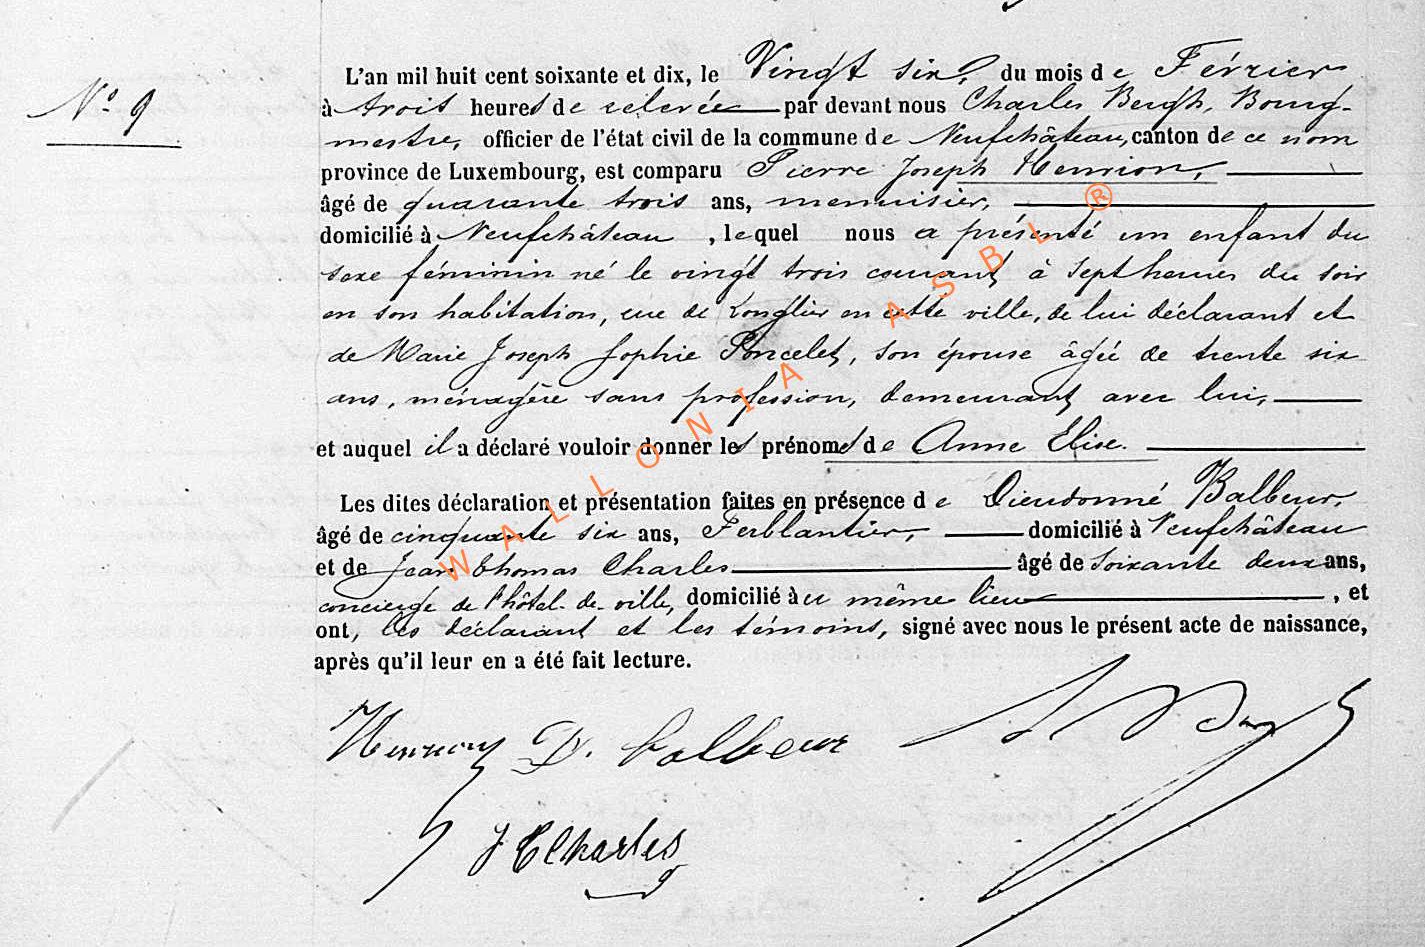 N.o 9
L'an mil huit cent soixante et dix, le Vingt six, du mois de Février
à trois heures de relevée par devant nous Charles Bergh, Bourg-
mestre, officier de l'état civil de la commune de Neufchâteau, canton de ce nom
province de Luxembourg, est comparu Pierre Joseph Henrion,
âgé de quarante trois ans, menuisier,
domicilié à Neufchâteau, lequel nous a présenté un enfant du
sexe féminin né le vingt trois courant à sept heures du soir
en son habitation, rue de Longlier en cette ville, de lui déclarant et
de Marie Joseph Sophie Poncelet, son épouse âgée de trente six
ans, ménagère sans profession, demeurant avec lui,
et auquel il a déclaré vouloir donner les prénoms de Anne Elise.
Les dites déclaration et présentation faites en présence de Dieudonné Balbeur,
âgé de cinquante six ans, Ferblantier, domicilié à Neufchâteau
et de Jean Thomas Charles âgé de soixante deux ans,
concierge de l'hôtel-de-ville, domicilié au même lieu, et
ont, les déclarant et les témoins, signé avec nous le présent acte de naissance,
après qu'il leur en a été fait lecture.
Henrion D. Balbeur
J T Charles
WALLONIA ASBL ®